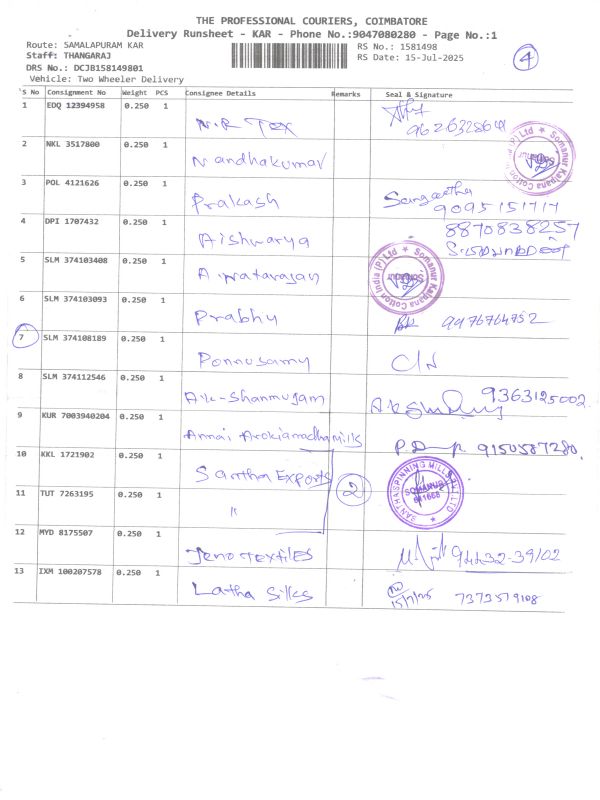 THE PROFESSIONAL COURIERS, COIMBATORE
Delivery Runsheet - KAR - Phone No.:9047080280 - Page No.:1
Route: SAMALAPURAM KAR
RS No.: 1581498
Staff: THANGARAJ
RS Date: 15-Jul-2025
4
DRS No.: DCJB158149801
Vehicle: Two Wheeler Delivery
S No Consignment No Weight PCS Consignee Details Remarks Seal & Signature
1 EDQ 12394958 0.250 1 N.R Tex
2 NKL 3517800 0.250 1 Nandhakumar
Somanur Kalpana Cotton India (P) Ltd
3 POL 4121626 0.250 1 Prakash Sangeetha
9095151717
4 DPI 1707432 0.250 1 Aishwarya 8870838257
5 SLM 374103408 0.250 1
Somanur Kalpana Cotton India (P) Ltd
6 SLM 374103093 0.250 1 Prabhu 9976764752
7 SLM 374108189 0.250 1 Ponnusamy C/N
8 SLM 374112546 0.250 1 A.K-Shanmugam 9363125002
9 KUR 7003940204 0.250 1 Annai Arokiamadha mills 9150587280
10 KKL 1721902 0.250 1 Santha Exports
2
SANTHA SPINNING MILLS PVT LTD
SOMANUR
641668
11 TUT 7263195 0.250 1 "
12 MYD 8175507 0.250 1 Jeno Textiles
13 IXM 100207578 0.250 1 Latha Silks 15/7/25 7373579108